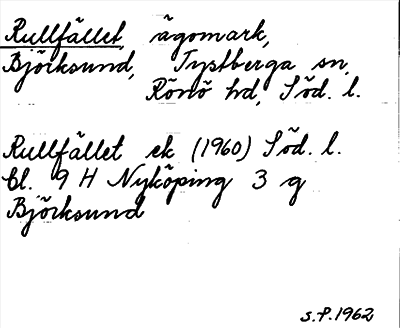 Rullfället, ägomark,
Björksund, Tystberga sn,
Rönö hd, Söd. l.
Rullfället ek (1960) Söd. l.
bl. 9 H Nyköping 3 g
Björksund
S.P. 1962